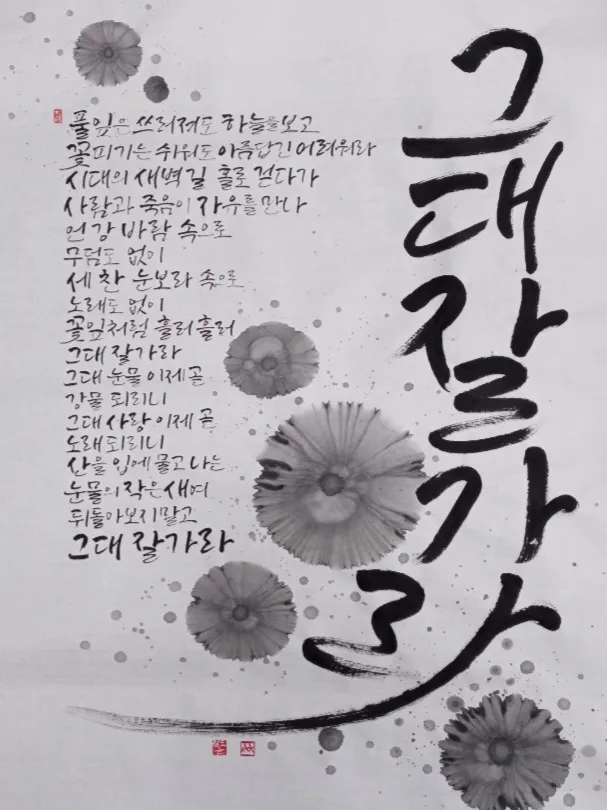 그대잘가라
풀잎은 쓰러져도 하늘을보고
꽃피기는 쉬워도아름답긴어려워라
시대의 새벽길 홀로 걷다가
사람과 죽음이 자유를만나
언 강 바람 속으로
무덤도 없이
세 찬 눈보라 속으로
노래도 없이
꽃잎처럼 흘러흘러
그대 잘가라
그대 눈물 이제 곧
강물 되리니
그대 사랑 이제 곧
노래되리니
산을 입에 물고 나는
눈물의 작은 새여
뒤돌아보지말고
그대 잘가라